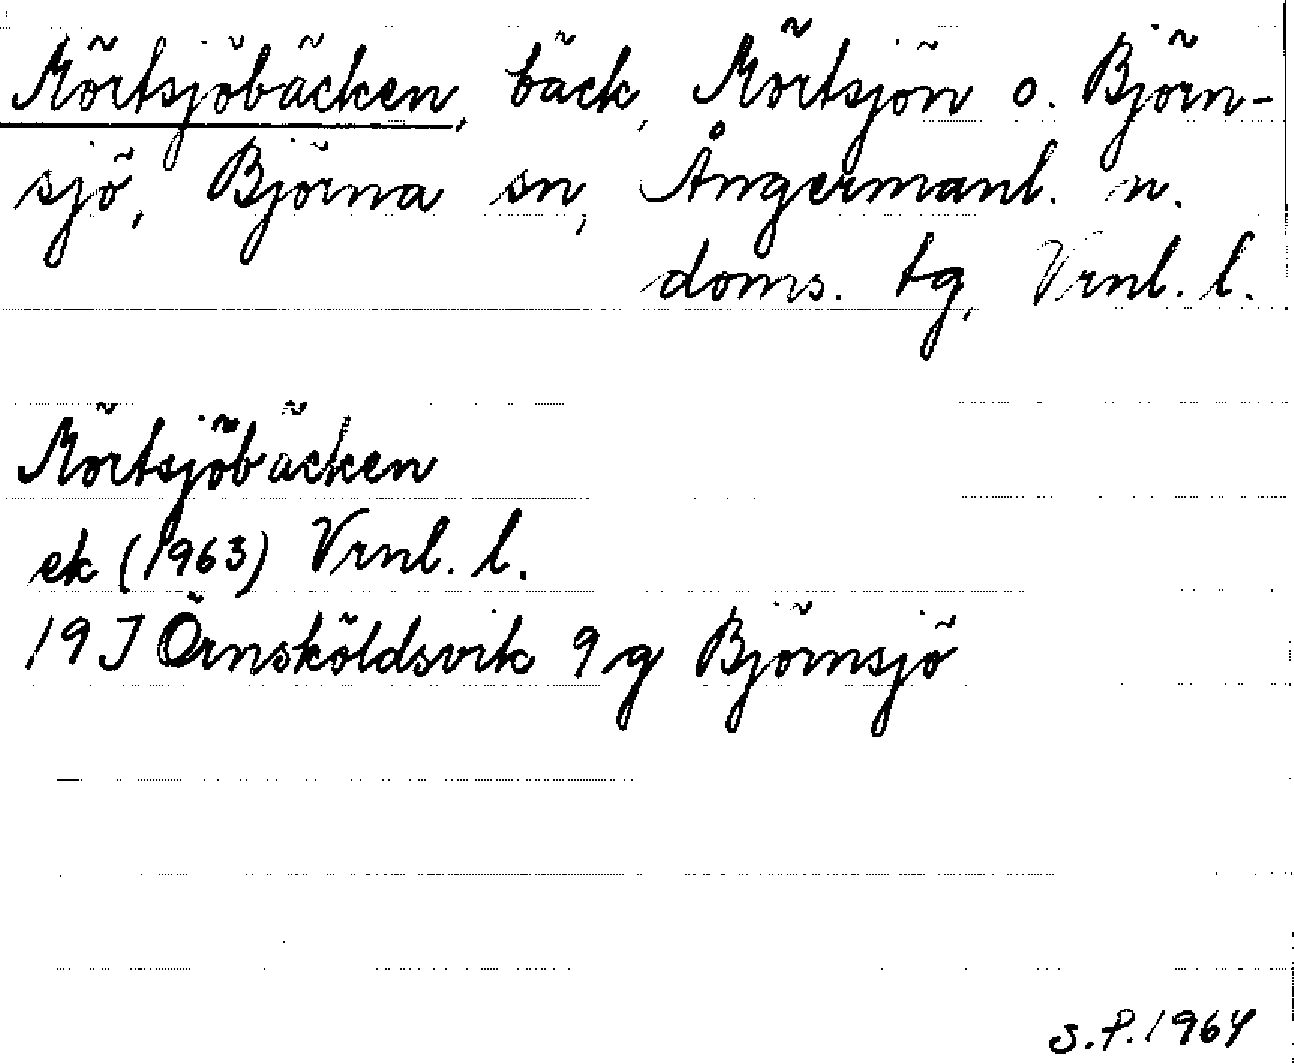 Mörtsjöbäcken, bäck, Mörtsjön o. Björn-
sjö, Björna sn, Ångermanl. n.
doms. tg, Vrnl. l.
Mörtsjöbäcken
ek (1963) Vrnl. l.
19J Örnsköldsvik 9g Björnsjö
S.P. 1964